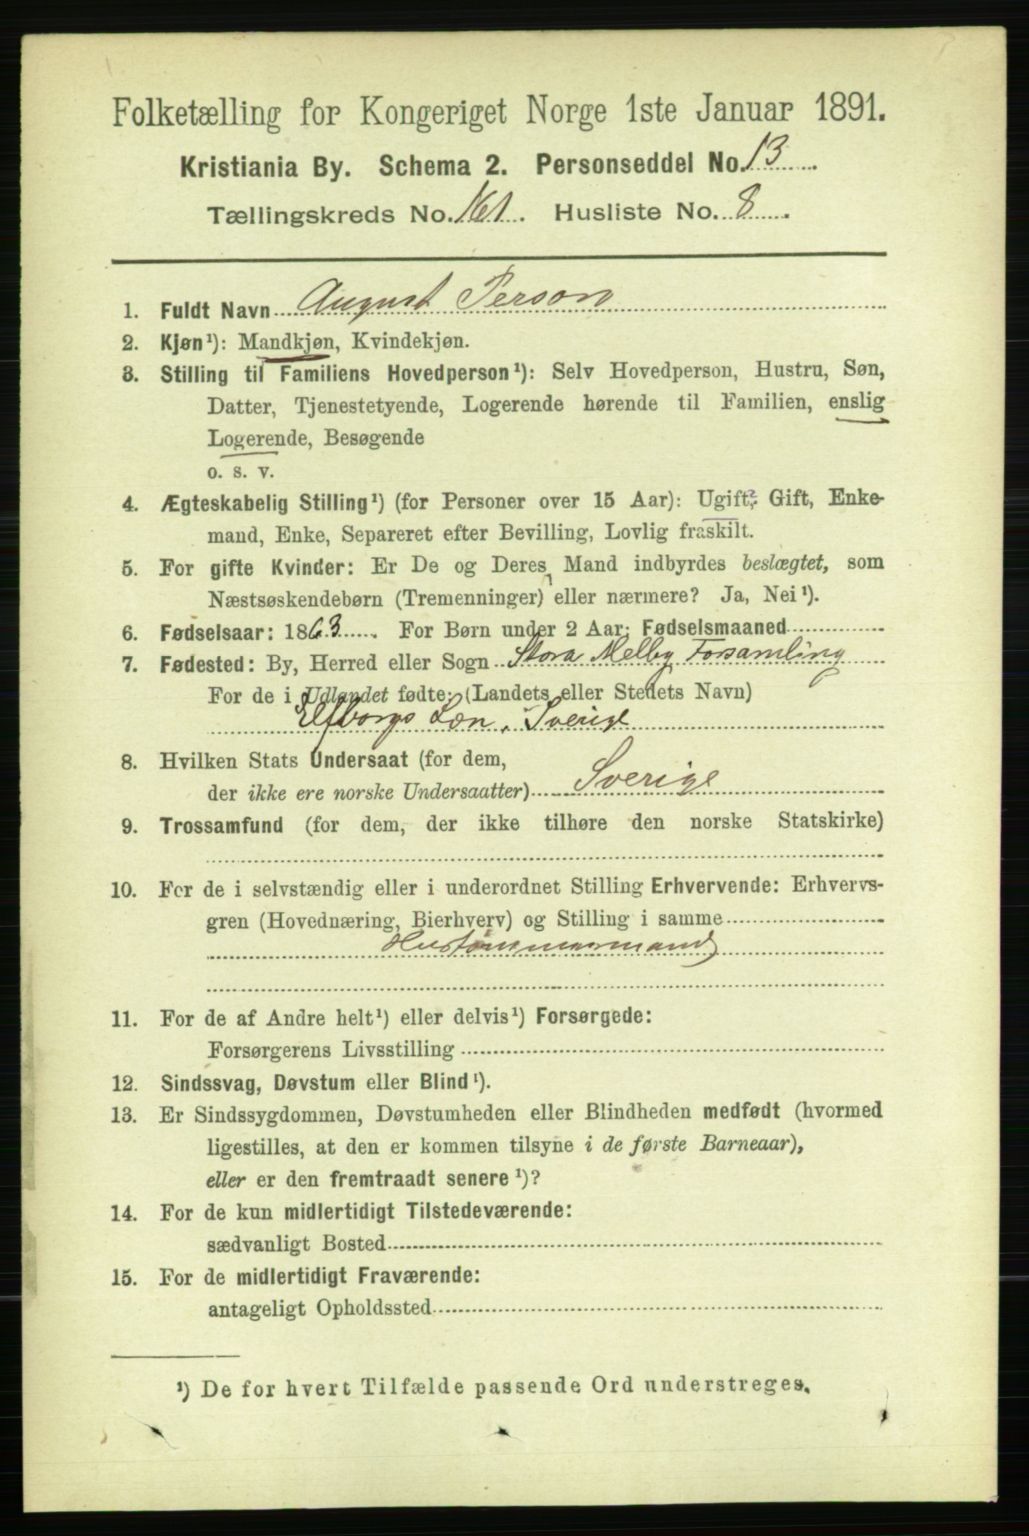 Folketælling for Kongeriget Norge 1ste Januar 1891.
Kristiania By. Schema 2. Personseddel No. 13
Tællingskreds No. 161. Husliste No. 8.
1. Fuldt Navn August Person
2. Kjøn¹): Mandkjøn, Kvindekjøn.
3. Stilling til Familiens Hovedperson¹): Selv Hovedperson, Hustru, Søn,
Datter, Tjenestetyende, Logerende hørende til Familien, enslig
Logerende, Besøgende
o. s. v.
4. Ægteskabelig Stilling¹) (for Personer over 15 Aar): Ugift, Gift, Enke-
mand, Enke, Separeret efter Bevilling, Lovlig fraskilt.
5. For gifte Kvinder: Er De og Deres Mand indbyrdes beslægtet, som
Næstsøskendebørn (Tremenninger) eller nærmere? Ja, Nei¹).
6. Fødselsaar: 1863. For Børn under 2 Aar: Fødselsmaaned
7. Fødested: By, Herred eller Sogn Stora Melby Forsamling
For de i Udlandet fødte: (Landets eller Stedets Navn)
Elfborgs Læn, Sverige
8. Hvilken Stats Undersaat (for dem,
der ikke ere norske Undersaatter) Sverige
9. Trossamfund (for dem, der ikke tilhøre den norske Statskirke)
10. For de i selvstændig eller i underordnet Stilling Erhvervende: Erhvervs-
gren (Hovednæring, Bierhverv) og Stilling i samme
Hustømmermand
11. For de af Andre helt¹) eller delvis¹) Forsørgede:
Forsørgerens Livsstilling
12. Sindssvag, Døvstum eller Blind¹).
13. Er Sindssygdommen, Døvstumheden eller Blindheden medfødt (hvormed
ligestilles, at den er kommen tilsyne i de første Barneaar),
eller er den fremtraadt senere¹)?
14. For de kun midlertidigt Tilstedeværende:
sædvanligt Bosted
15. For de midlertidigt Fraværende:
antageligt Opholdssted
¹) De for hvert Tilfælde passende Ord understreges.